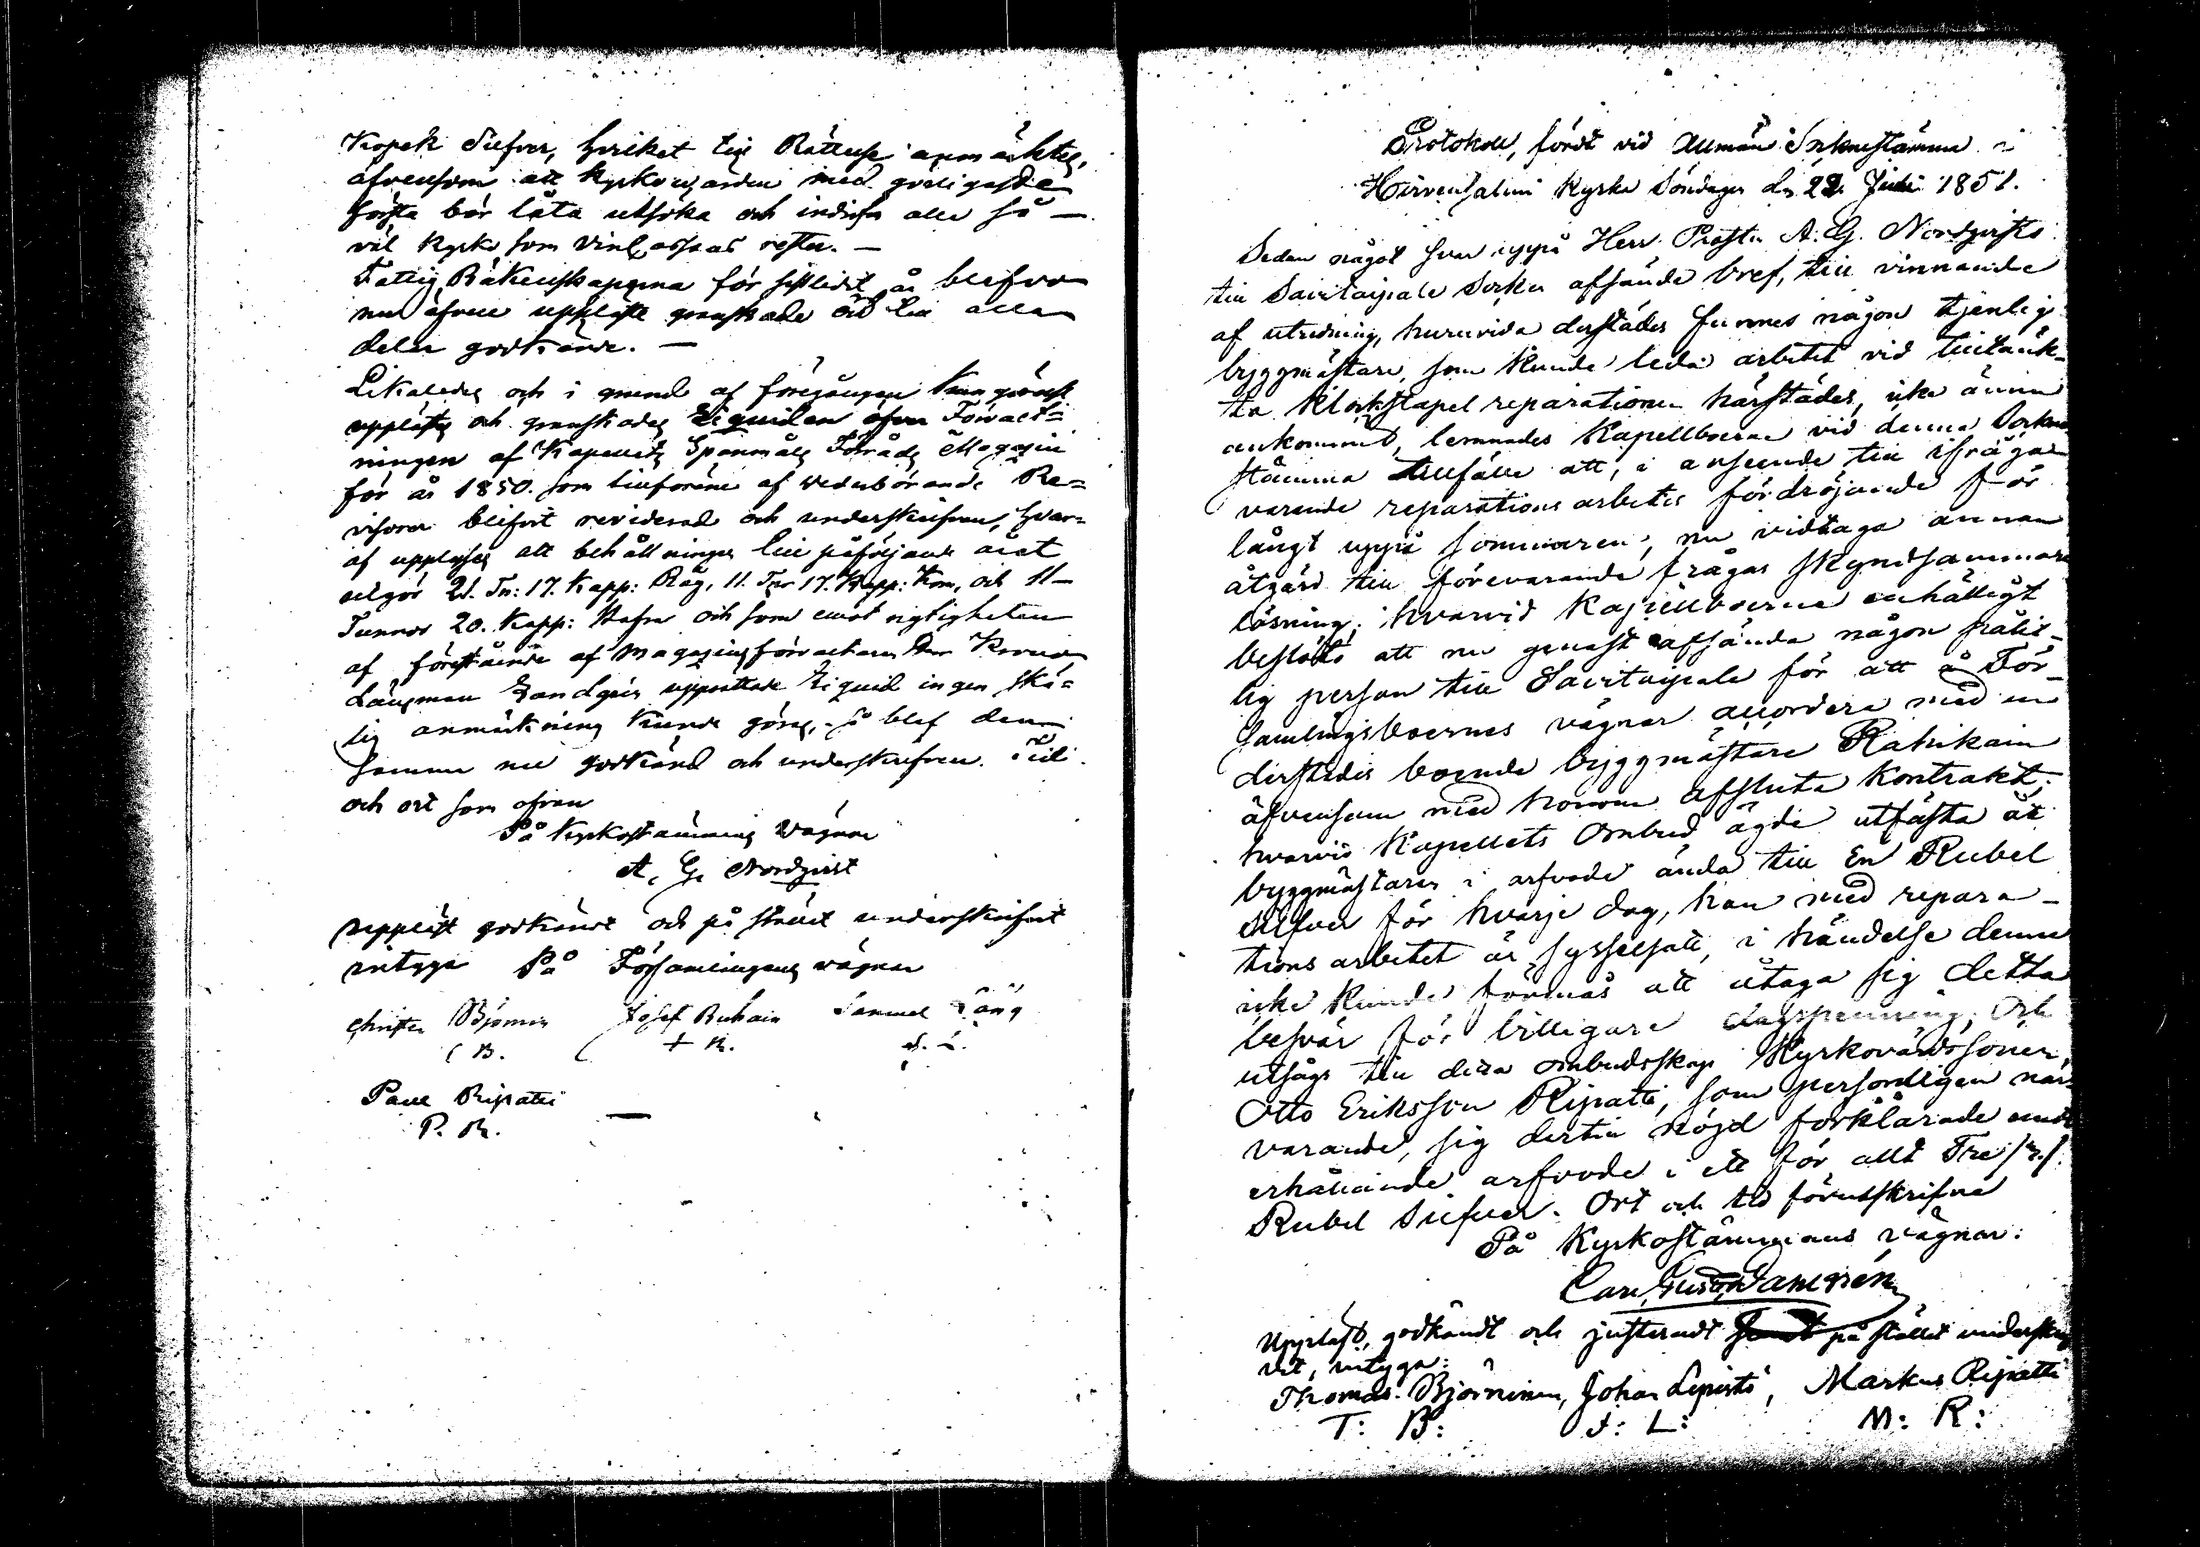 Kopek Silfver, hvilket till Rättelse anmärktes,
äfvensom att kyrkovärden med görligaste
första bör låta utsöka och indrifva alla så -
väl kyrko som vinkassas rester. -
Fattig Räkenskaperna för sistlidet år blefvo
nu äfven uppläste granskade och till alla
delar godkände. -
Likaledes och i grund af föregången kungörelse
upplästes och granskades Liquiden öfver Förvalt=
ningen af Kapellets Spanmåls Förråds Magazin
för år 1850. som tillförene af vederbörande Re=
visorer blifvit reviderad och underskrifven, hvar=
af upplystes att behållningen till påföljande året
utgör 21. Tnr: 17. Kapp: Råg, 11. Tnr 17. Kapp: Korn, och 11-
Tunnor 20. Kapp: Hafra och som emot rigtigheten
af förestående af Magazinsförvaltaren Herr Krono
Länsman Landgrén upprättade Liquid ingen skä=
lig anmärkning kunde göras, så blef den=
samma nu godkänd och underskrifven. Tid
och ort som ofvan
På Kyrkostämmans vägnar
A. G. Nordqvist
Uppläst godkändt och på stället underskrifvit
intyga På Församlingens vägnar
Christer Björnin Josef Ruhain Samuel Läng
C B. + R. S. L.
Paul Ripatti
P. R. -
Protokoll, fördt vid Allmän Sockenstämma i
Hirvensalmi Kyrka Söndagen den 22 Juni 1851.
Sedan något svar uppå Herr Prosten A. G. Nordqvists
till Savitaipale Socken afsände bref, till vinnande
af utredning, huruvida derstädes funnes någon tjenlig
byggmästare, som kunde leda arbetet vid tilltänk-
ta klockstapel reparationen härstädes, icke ännu
ankommit, lemnades Kapellboerne vid denna Socken
stämma tillfälle att, i anseende till ifråga
varande reparations arbetes fördröjande för
långt uppå sommaren, nu vidtaga annan
åtgärd till förevarande frågas skyndsammare
lösning; hvarvid Kapellboerne enhälligt
beslöto att nu genast afsända någon pålit-
lig person till Savitaipale för att å För-
samlingsboernes vägnar accordera med en
derstädes boende byggmästare Ratikain
äfvensom med honom afsluta Kontrakt;
hvarvid Kapellets Ombud ägde utfästa åt
byggmästaren i arfvode ända till En Rubel
Silfver för hvarje dag, han med repara-
tions arbetet är sysselsatt, i händelse denne
icke kunde förmås att åtaga sig detta
besvär för billigare dagspenning; Och
utsågs till detta ombudsskap Kyrkovärdssonen,
Otto Eriksson Ripatti, som personligen när-
varande, sig dertill nöjd förklarade emot
erhållande arfvode i ett för allt Tre /3./.
Rubel Silfver. Ort och tid förutskrifna
På Kyrkostämmans vägnar:
Carl Gustaf
Uppläst, godkändt och justeradt på stället underskrif
vit, intyga:
Thomas Björninen, Johan Lepistö, Markus Ripatti
T: B: J: L: M: R: